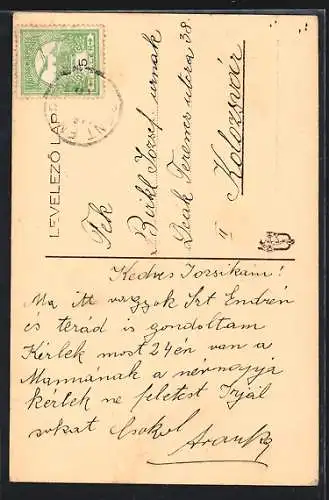 LEVELEZŐ LAP
Tek
Birkl József urnak
Deák Ferenc utca 38.
II
Kolozsvár
Kedves Jozsikám!
Ma itt vagyok Szt Endrén
és terád is gondoltam
Kérlek most 24én van a
Mamának a névnapja
kérlek ne feletest Irjál
sokat Csokol
Aranka